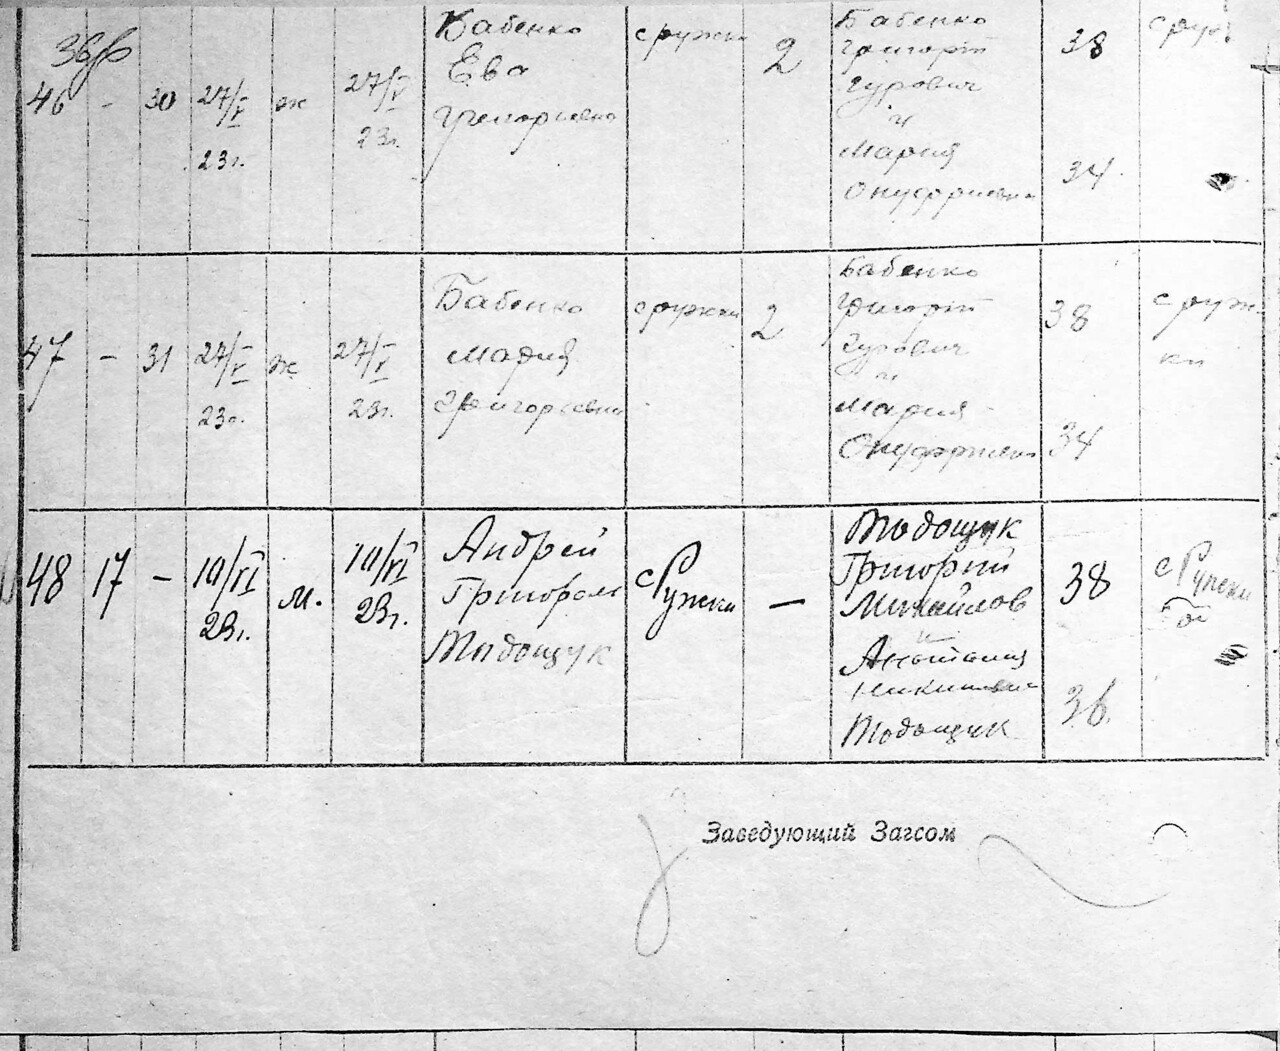 46 - 30 27/V 23г. ж 27/V 23г.
Бабенко
Ева
Григорьевна
с ружки
2
Бабенко
Григорій
Гурович
и
Мария
Онуфриевна
38
34
с руж
47 - 31 27/V 23г. ж 27/V 23г.
Бабенко
Мария
Григорьевна
с ружки
2
Бабенко
Григорій
Гурович
и
Мария
Онуфриевна
38
34
с руж-
ки
48 17 - 10/VI 23г. м. 10/VI 23г.
Андрей
Тодощук
с Ружки
—
Тодощук
Григорий
Михайлов
и
Тодощук
38
36
с Ружки
Заведующий Загсом